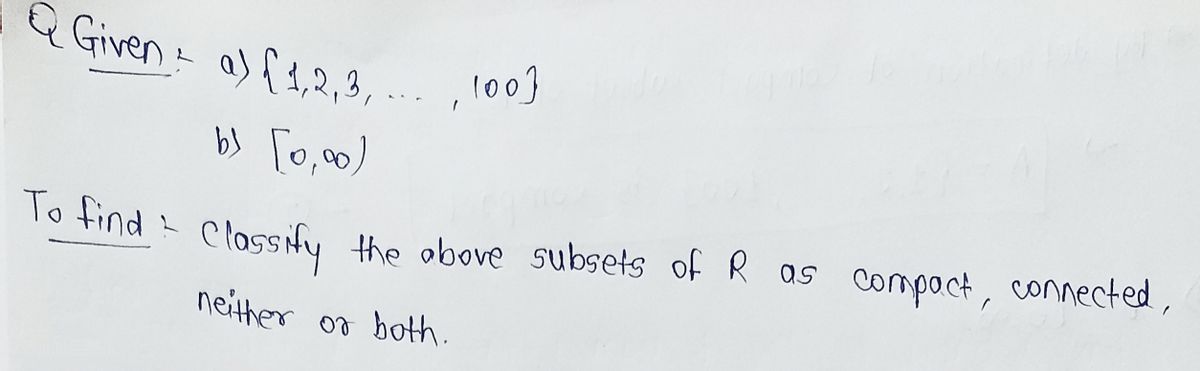 Q Given :- a) {1,2,3, ... , 100}
b) [0,∞)
To find :- Classify the above subsets of R as compact, connected,
neither or both.